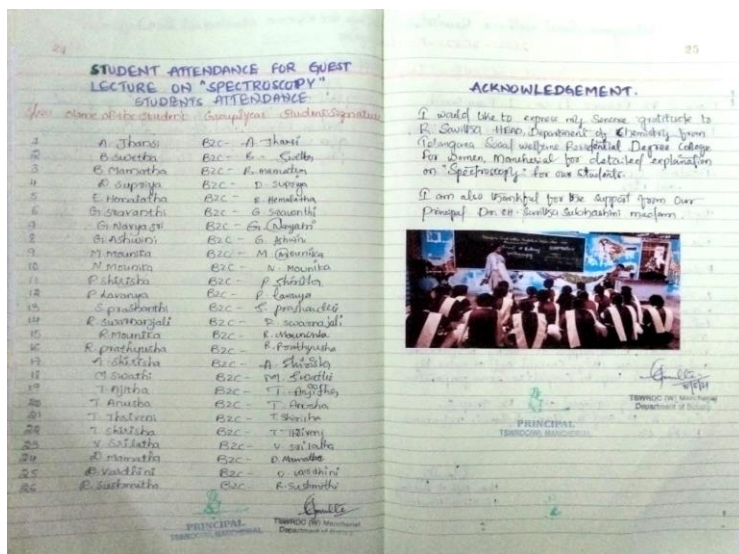 24
STUDENT ATTENDANCE FOR GUEST
LECTURE ON "SPECTROSCOPY"
STUDENTS ATTENDANCE
S.No Name of the Student Group/year Student Signature
1 A Jhansi BZC- A Jhansi
2 B Swetha BZC- B Swetha
3 B Mamatha BZC-
4 D Supriya BZC- D. Supriya
5 E Hemalatha BZC- E Hemalatha
6 G Sravanthi BZC- G Sravanthi
7 G Navya Sri BZC- G
8 G Ashwini BZC- G Ashwini
9 M Mounika BZC- M Mounika
10 N Mounika BZC- N. Mounika
11 P Shirisha BZC- P
12 P Lavanya BZC- P. Lavanya
13 S prashanthi BZC- S
14 R. Swathanjali BZC- R
15 R Mounika BZC- R. Mounika
16 R. prathyusha BZC- R. Prathyusha
17 Shirisha BZC-
18 M Swathi BZC- M Swathi
19 T. Ajitha BZC- T.
20 T. Anusha BZC- T Anusha
21 T. BZC- T
22 T. Shirisha BZC- T
23 V Srilatha BZC- V Srilatha
24 D Mamatha BZC- D. Mamatha
25 D. Vardhini BZC-
26 R. Sushmitha BZC- R. Sushmitha
PRINCIPAL
TSWRDC(W), MANCHERIAL
TSWRDC (W) Mancherial
Department of Botany
25
ACKNOWLEDGEMENT.
I would like to express my Sincere gratitude to
R HEAD, Department of Chemistry from
Telangana Social welfare Residential Degree College
For Women, Mancherial for detailed explanation
on "Spectroscopy" for our students.
I am also thankful for the support from Our
principal madam.
TSWRDC (W) Mancherial
Department of Botany
PRINCIPAL
TSWRDC(W), MANCHERIAL